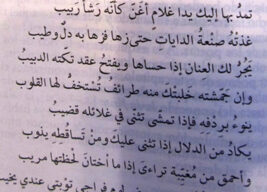 تمد بها إليك يدا غلام أغن كأنه رشأ ربيب
غذته صنعة الدايات حتى زها فزها به دل وطيب
يجر لك العنان إذا حساها ويفتح عقد تكته الدبيب
وإن جمشته خلبتك منه طرائف تستخف لها القلوب
ينوء بردفه فإذا تمشى تثنى في غلائله قضيب
يكاد من الدلال إذا تثنى عليك ومن تساقطه يذوب
وأحمق من مغيبة تراءى إذا ما اختان لحظتها مريب